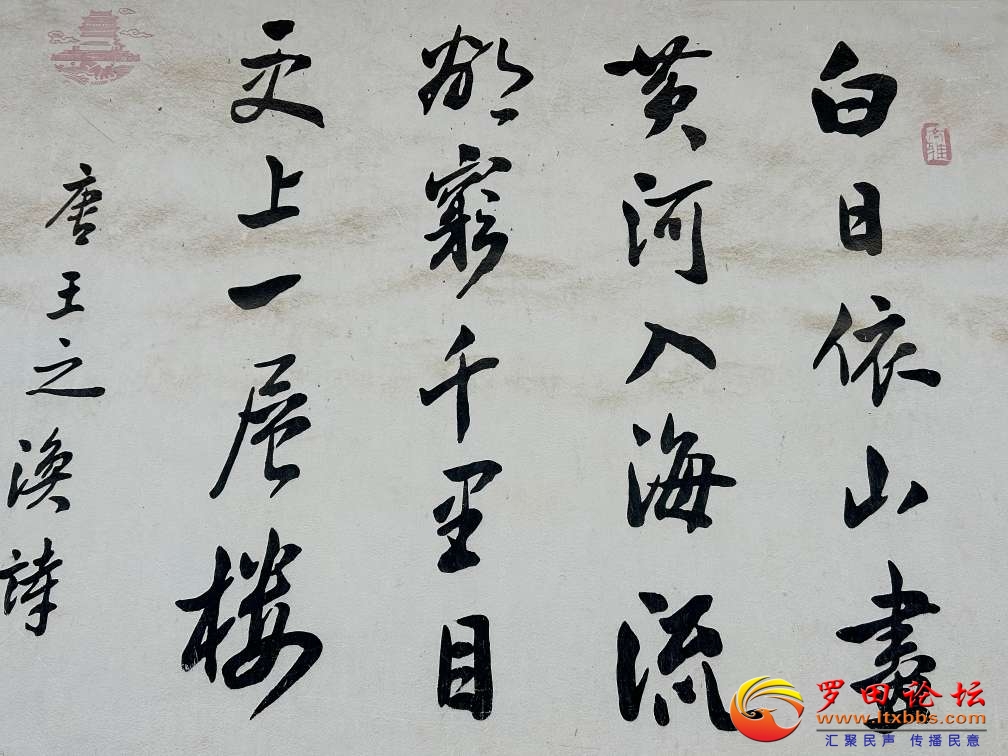 白日依山盡
黄河入海流
欲窮千里目
更上一层楼
唐王之涣詩
罗田论坛
www.ltxbbs.com
汇聚民声 传播民意